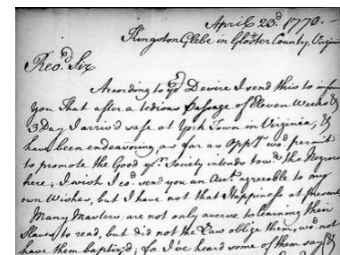 April 23d 1770.—
Kingston Glebe in Gloster County Virginia
Revd Sir
According to yr Desire I send this to inform
you That after a tedious Passage of Eleven Weeks &
3 Day I arriv'd safe at York Town in Virginia, &
have been endeavouring as far as Oppty wod permit
to promote the Good yr Society intends towd the Negroes
here; I wish I cod send you an Acct agreable to my
own Wishes, but I have not that Happiness at present
Many Masters, are not only averse to learning their
Slaves to read, but did not the Law oblige them, wod not
have them baptiz'd; for I've heard some of them say